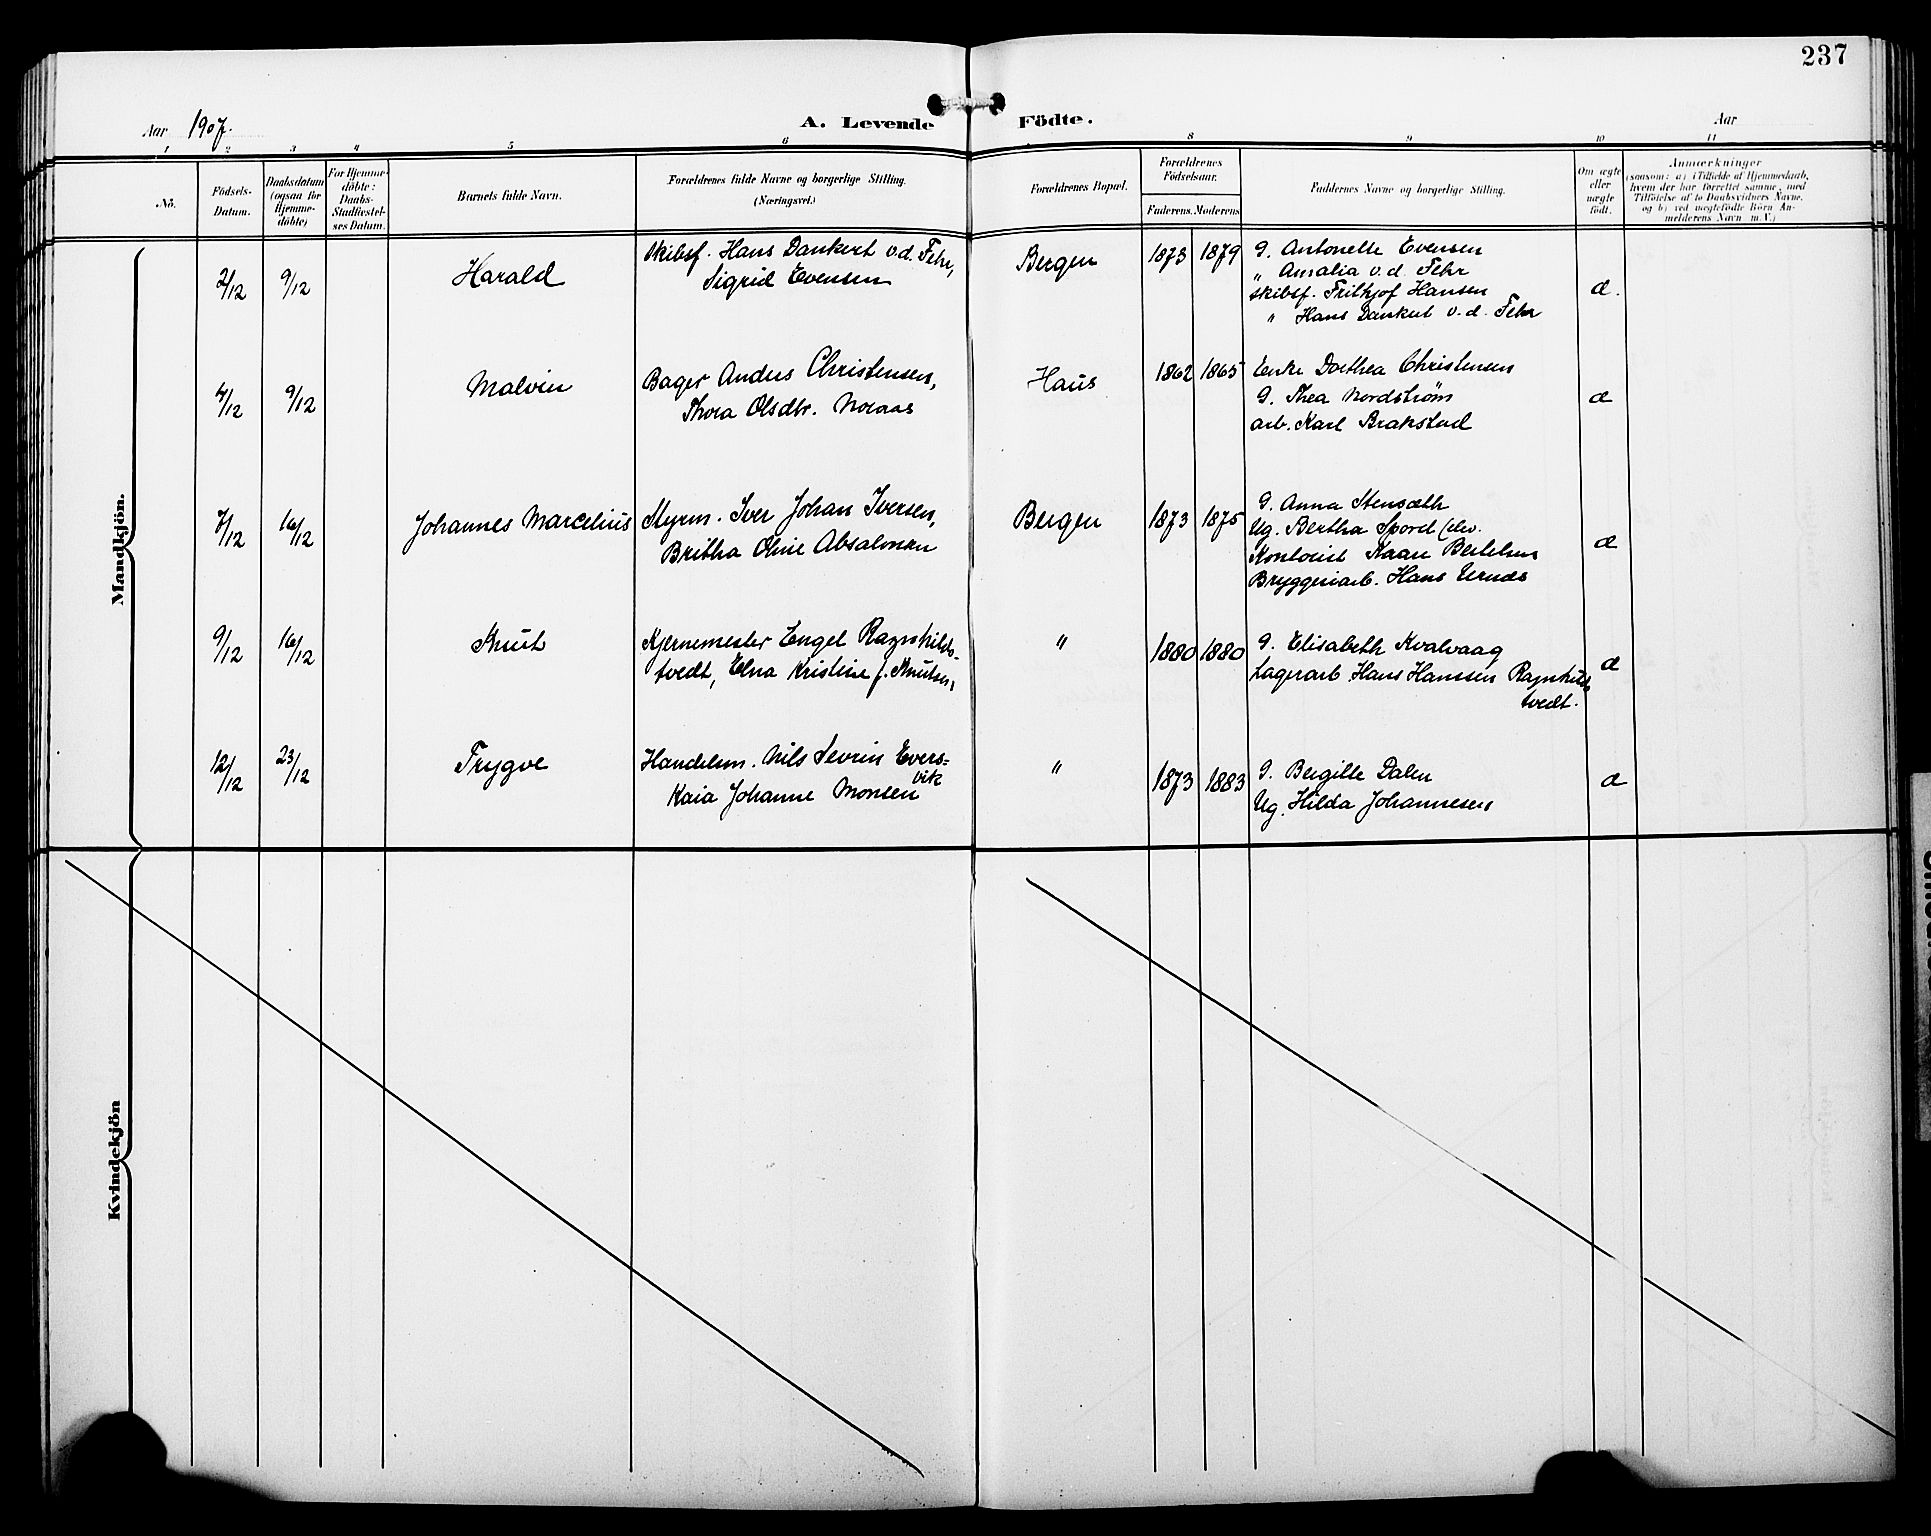 237
Aar 1907.
A. Levende Födte.
Aar
1 2 3 4 5 6 8 9 10 11
No.
Födsels-
Datum.
Daabsdatum
(ogsaa for
Hjemme-
döbte)
For Hjemme-
döbte:
Daabs-
Stadfæstel-
ses Datum.
Barnets fulde Navn.
Forældrenes fulde Navne og borgerlige Stilling.
(Næringsvei.)
Forældrenes Bopæl.
Forældrenes
Födselsaar.
Faderens. Moderens
Faddernes Navne og borgerlige Stilling.
Om ægte
eller
uægte
født.
Anmærkninger
(saasom: a) i Tilfælde af Hjemmedaab,
hvem der har forrettet samme, med
Tilföielse af to Daabsvidners Navne,
og b) ved uægtefödte Börn An-
melderens Navn m. V.)
Mandkjön.
2/12 9/12
Harald
Skibsf. Hans Dankert v.d. Fehr,
Sigrid Evensen
Bergen
1873 1879
G. Antonette Evensen
" Amalia v. d. Fehr
Skibsf. Frithjof Hansen
" Hans Dankert v. d. Fehr
æ.
4/12 9/12
Malvin
Bager Anders Christensen,
Thora Olsdtr. Noraas
Haus
1862 1865
Enke Dorthea Christensen
G. Thea Nordstrøm
arb. Karl Brakstad
æ
7/12 16/12
Johannes Marcelius
Styrm. Iver Johan Iversen,
Britha Oline Absalonsen
Bergen
1873 1875
G. Anna Stensæth
Ug. Bertha
Kontorist Kaare Bertelsen
Bryggeriarb. Hans Urnes
æ
9/12 16/12
Knut
Kjernemester Engel Ragnhilds-
tvedt, Elna Kristine f. Knutsen,
"
1880 1880
G. Elisabeth Kvalvaag
Lagerarb. Hans Hanssen Ragnhilds
tvedt.
æ
12/12 23/12
Trygve
Handelsm. Nils Sevrin Evers-
vik
Kaia Johanne Monsen
"
1873 1883
G. Bergitte Dalen
Ug. Hilda Johannesen
æ
Kvindekjön